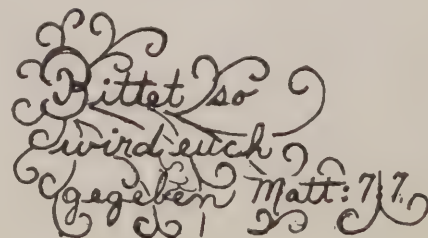 Bittet so
wird euch
gegeben Matt: 7,7.